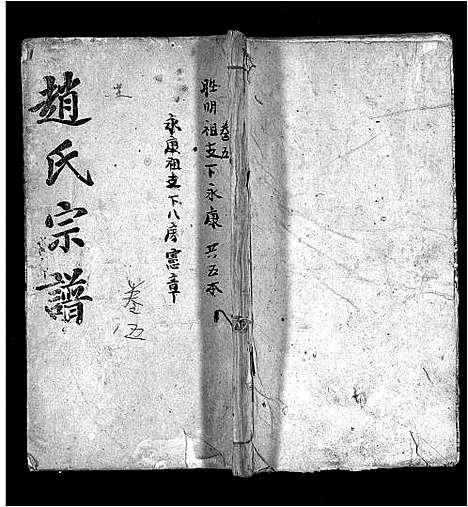 卷五
胜明祖支下永康 共五本
永康祖支下八房憲章
趙氏宗譜
卷伍